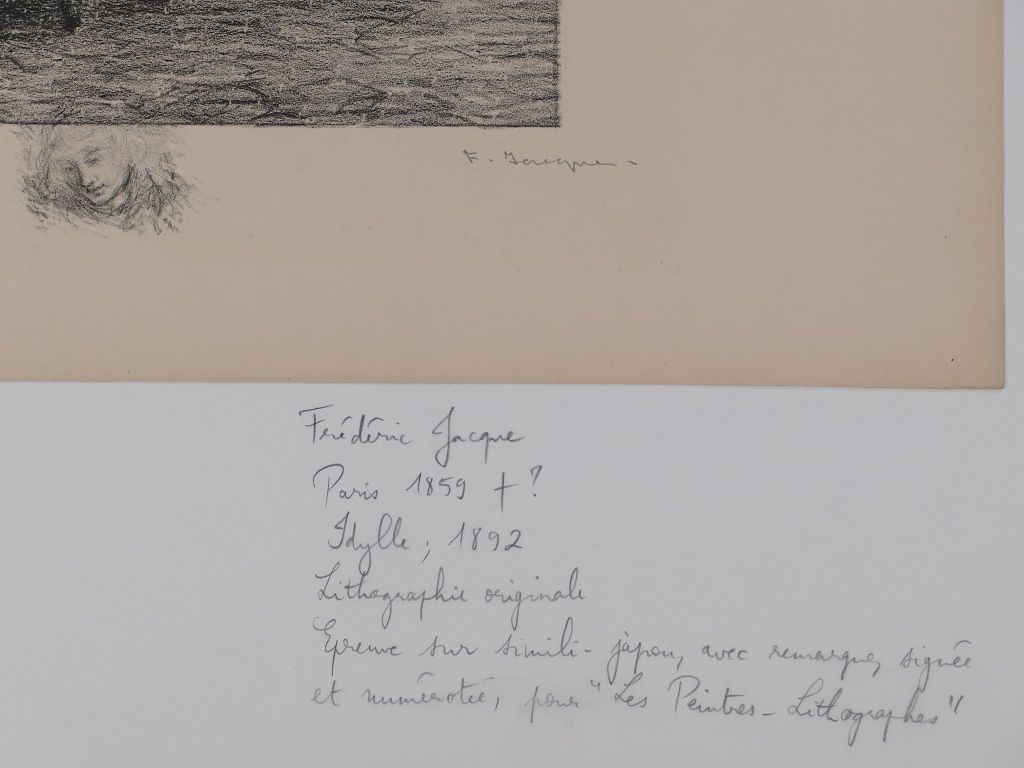 F. Jacque -
Frédéric Jacque
Paris 1859 † ?
Idylle ; 1892
Lithographie originale
Epreuve sur simili-japon, avec remarque, signée
et numérotée, pour "Les Peintres-Lithographes"